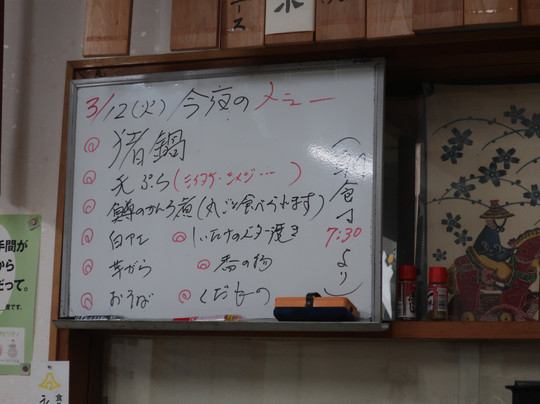 3/12(火) 今夜のメニュー
猪鍋
天ぷら(シイタケ・シメジ…)
鱒のかんろ煮(丸ごと食べられます)
白アエ
しいたけのバター焼き
芋がら
香の物
おそば
くだもの
7:30より)
手間が
から
だって。